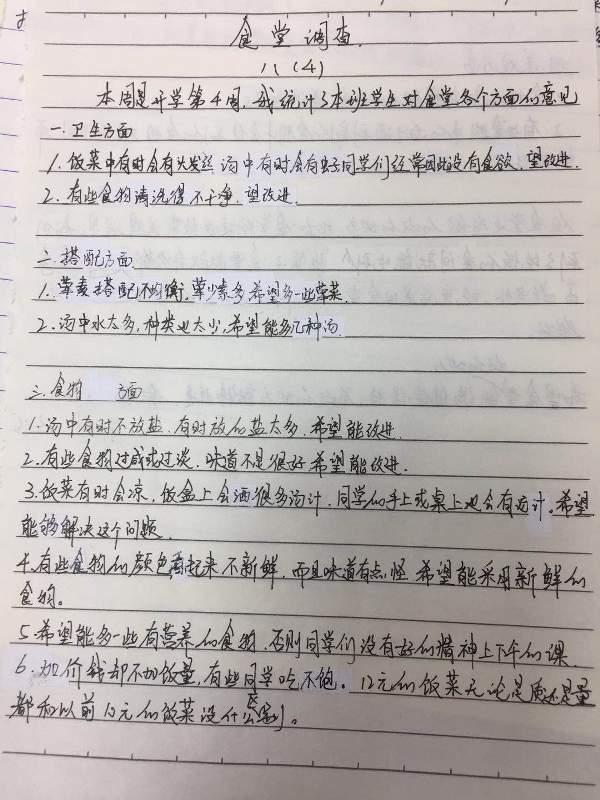 食堂调查
八(4)
本周是开学第4周,我统计了本班学生对食堂各个方面的意见
一.卫生方面
1.饭菜中有时会有头发丝 汤中有时会有虫子同学们经常因此没有食欲,望改进.
2.有些食物清洗得不干净,望改进.
二.搭配方面.
1.荤素搭配不均衡,荤少素多,希望多一些荤菜.
2.汤中水太多,种类也太少,希望能多几种汤.
三.食物 方面
1.汤中有时不放盐.有时放的盐太多.希望能改进.
2.有些食物过咸或过淡.味道不是很好,希望能改进.
3.饭菜有时会凉,饭盒上会洒很多汤汁.同学的手上或桌上也会有 汁,希望
能够解决这个问题.
4.有些食物的颜色看起来不新鲜,而且味道有点怪 希望能采用新鲜的
食物。
5.希望能多一些有营养的食物,否则同学们没有好的精神上下午的课.
6.加价钱却不加饭量,有些同学吃不饱。12元的饭菜无论是质还是量
都和以前10元的饭菜没什么区别。